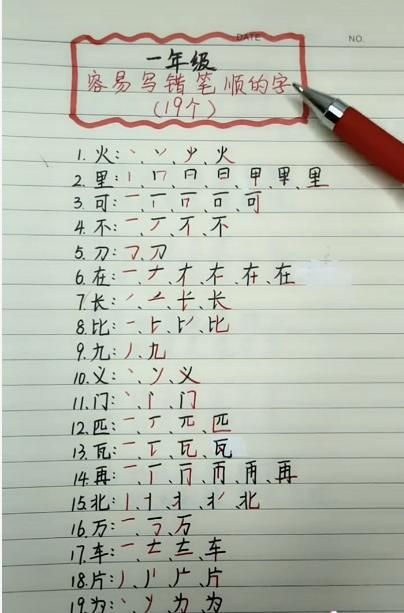 DATE
NO.
一年级
容易写错笔顺的字
(19个)
1. 火: 丶、丷、少、火
2. 里: 丨、冂、日、日、甲、里、里
3. 可: 一、丁、可
4. 不: 一、丆、不、不
5. 刀: 刀、刀
6. 在: 一、ナ、才、在、在
7. 长: 长、长
8. 比: 一、比
9. 九: 丿、九
10. 义: 丶、丷、义
11. 门: 丶、门
12. 匹: 一、丆、兀、匹
13. 瓦: 一、瓦、瓦
14. 再: 一、丆、冂、再、再
15. 北: 丨、北
16. 万: 一、万、万
17. 车: 一、车
18. 片: 丿、片
19. 为: 丶、丷、为、为